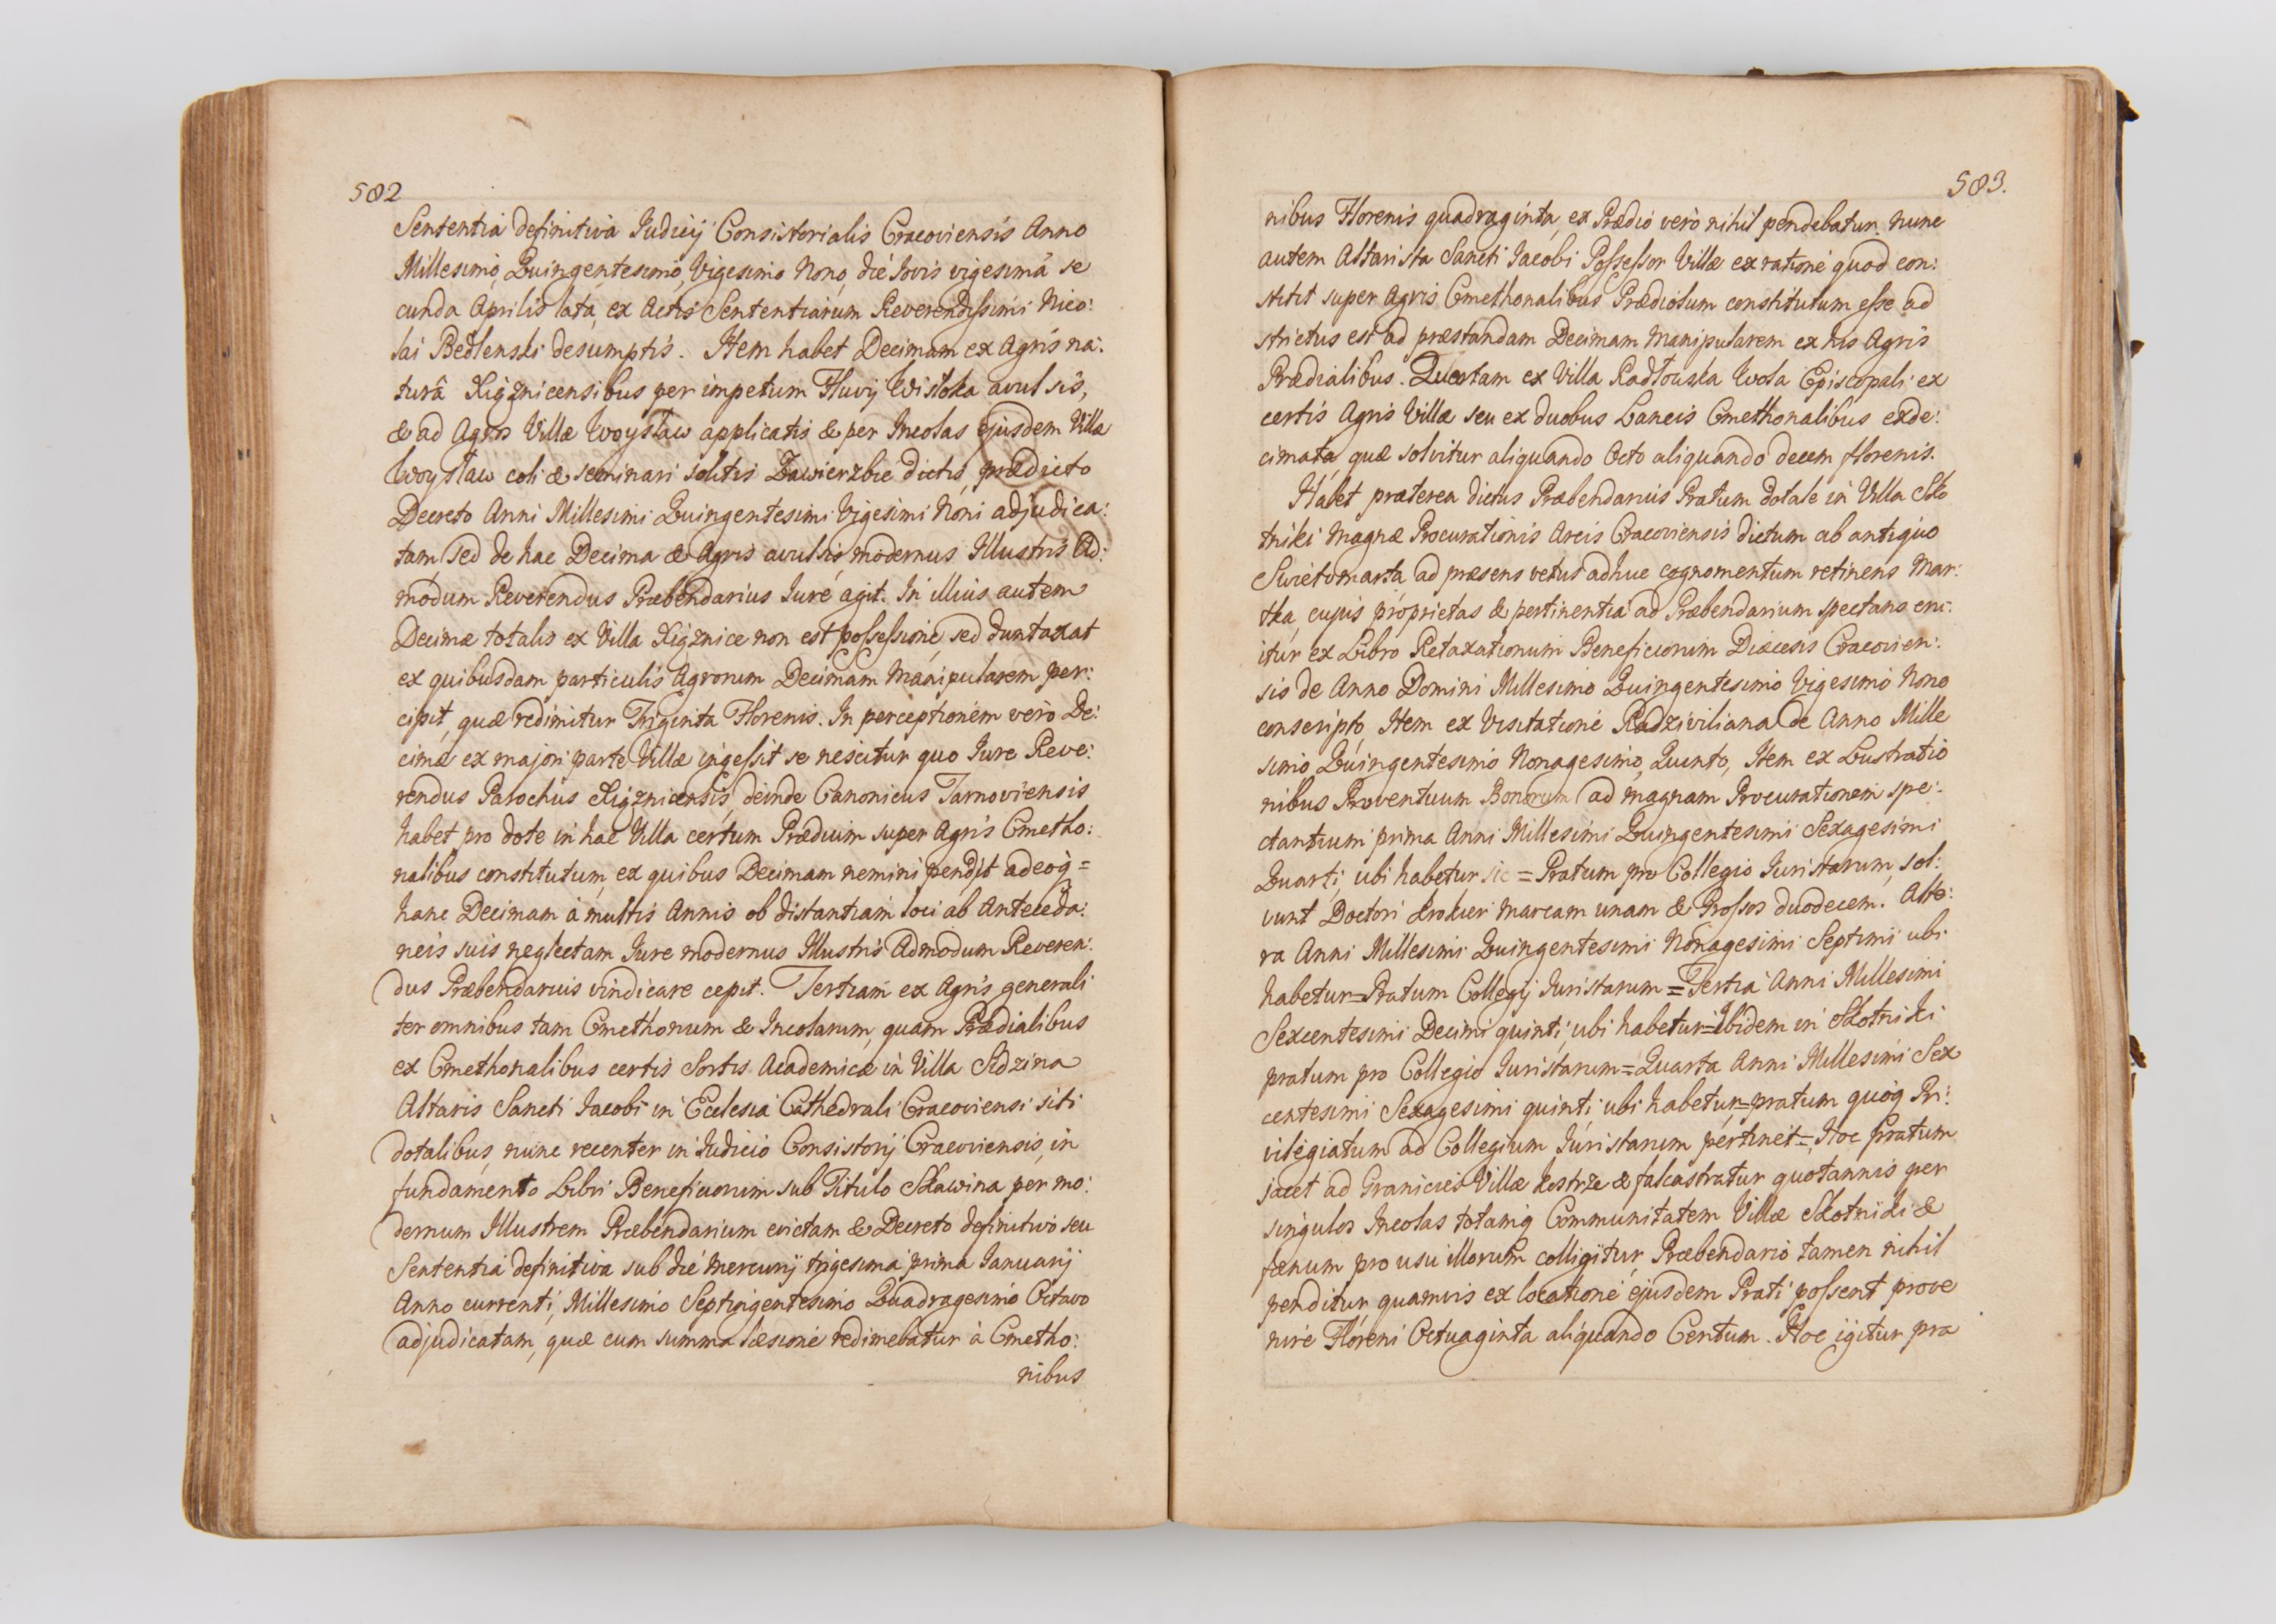 582
Sententia definitiva Judicij Consistorialis Cracoviensis Anno
Millesimo, Quingentesimo, Vigesimo Nono, die Jovis vigesima se
cunda Aprilis lata, ex Actis Sententiarum Reverendissimi Nico:
lai Bedlenski desumptis. Item habet Decimam ex Agris na:
turâ Xiąznicensibus per impetum Fluvij Wisłoka avulsis,
& ad Agros Villæ Woysław applicatis & per Incolas ejusdem Villæ
Woysław coli & seminari solitis Zawierzbie dictis, prædicto
Decreto Anni Millesimi Quingentesimi Vigesimi Noni adjudica:
tam sed de hac Decima & Agris avulsis modernus Illustris Ad:
modum Reverendus Præbendarius Jure agit. In illius autem
Decimæ totalis ex Villa Xiąznice non est possessione, sed duntaxat
ex quibusdam particulis Agrorum Decimam Manipularem per:
cipit, quæ redimitur Triginta Florenis. In perceptionem verò De:
cimæ ex majori parte Villæ ingessit se nescitur quo Jure Reve:
rendus Parochus Xiąznicensis, deinde Canonicus Tarnoviensis
habet pro dote in hac Villa certum Prædium super Agris Cmetho:
nalibus constitutum, ex quibus Decimam nemini pendit adeoq=
hanc Decimam à multis Annis ob distantiam loci ab Anteceda:
neis suis neglectam Jure modernus Illustris Admodum Reveren:
dus Præbendarius vindicare cepit. Tertiam ex Agris generali
ter omnibus tam Cmethonum & Incolarum, quam Prædialibus
ex Cmethonalibus certis Sortis Academicæ in Villa Sidzina
Altaris Sancti Jacobi in Ecclesia Cathedrali Cracoviensi siti
dotalibus, nunc recenter in Judicio Consistorij Cracoviensis, in
fundamento Libri Beneficiorum sub Titulo Skawina per mo:
dernum Illustrem Præbendarium evictam & Decreto definitivo seu
Sententia definitiva sub die Mercurij trigesima prima Januarij
Anno currenti, Millesimo Septingentesimo Quadragesimo Octavo
adjudicatam, quæ cum summa læsione redimebatur à Cmetho:
nibus
583.
nibus Florenis quadraginta, ex Prædio verò nihil pendebatur. Nunc
autem Altarista Sancti Jacobi Possessor Villæ ex ratione quod con:
stitit super Agris Cmethonalibus Prædiolum constitutum esse ad
strictus est ad præstandam Decimam Manipularem ex his Agris
Prædialibus. Quartam ex Villa Radłowska Wola Episcopali ex
certis Agris Villæ seu ex duobus Laneis Cmethonalibus exde:
cimata, quæ solvitur aliquando Octo aliquando decem florenis.
Habet præterea dictus Præbendarius Pratum dotale in Villa Sko
tniki Magnæ Procurationis Arcis Cracoviensis dictum ab antiquo
Swiétomarta ad præsens vetus adhuc cognomentum retinens Mar:
tka, cujus proprietas & pertinentia ad Præbendarium spectans eru:
itur ex Libro Retaxationum Beneficiorum Diæcesis Cracovien:
sis de Anno Domini Millesimo Quingentesimo Vigesimo Nono
conscripto, Item ex Visitatione Radziviliana de Anno Mille
simo Quingentesimo Nonagesimo, Quinto, Item ex Lustratio
nibus Proventuum Bonorum ad magnam Procurationem spe:
ctantium prima Anni Millesimi Quingentesimi Sexagesimi
Quarti, ubi habetur sic = Pratum pro Collegio Juristarum, sol:
vunt Doctori Krokier Marcam unam & Grossos duodecem. Alte:
ra Anni Millesimi Quingentesimi Nonagesimi Septimi ubi
habetur=Pratum Collegij Juristarum=Tertia Anni Millesimi
Sexcentesimi Decimi quinti, ubi habetur=Ibidem in Skotniki
pratum pro Collegio Juristarum=Quarta Anni Millesimi Sex
centesimi Sexagesimi quinti ubi habetur=pratum quoq Pri:
vilegiatum ad Collegium Juristarum pertinet=, Hoc Pratum
jacet ad Granicies Villæ Kostrze & falcastratur quotannis per
singulos Incolas totamq Communitatem Villæ Skotniki &
fænum pro usu illorum colligitur, Præbendario tamen nihil
penditur, quamvis ex locatione ejusdem Prati possent prove
nire Floreni Octuaginta aliquando Centum. Hoc igitur pra